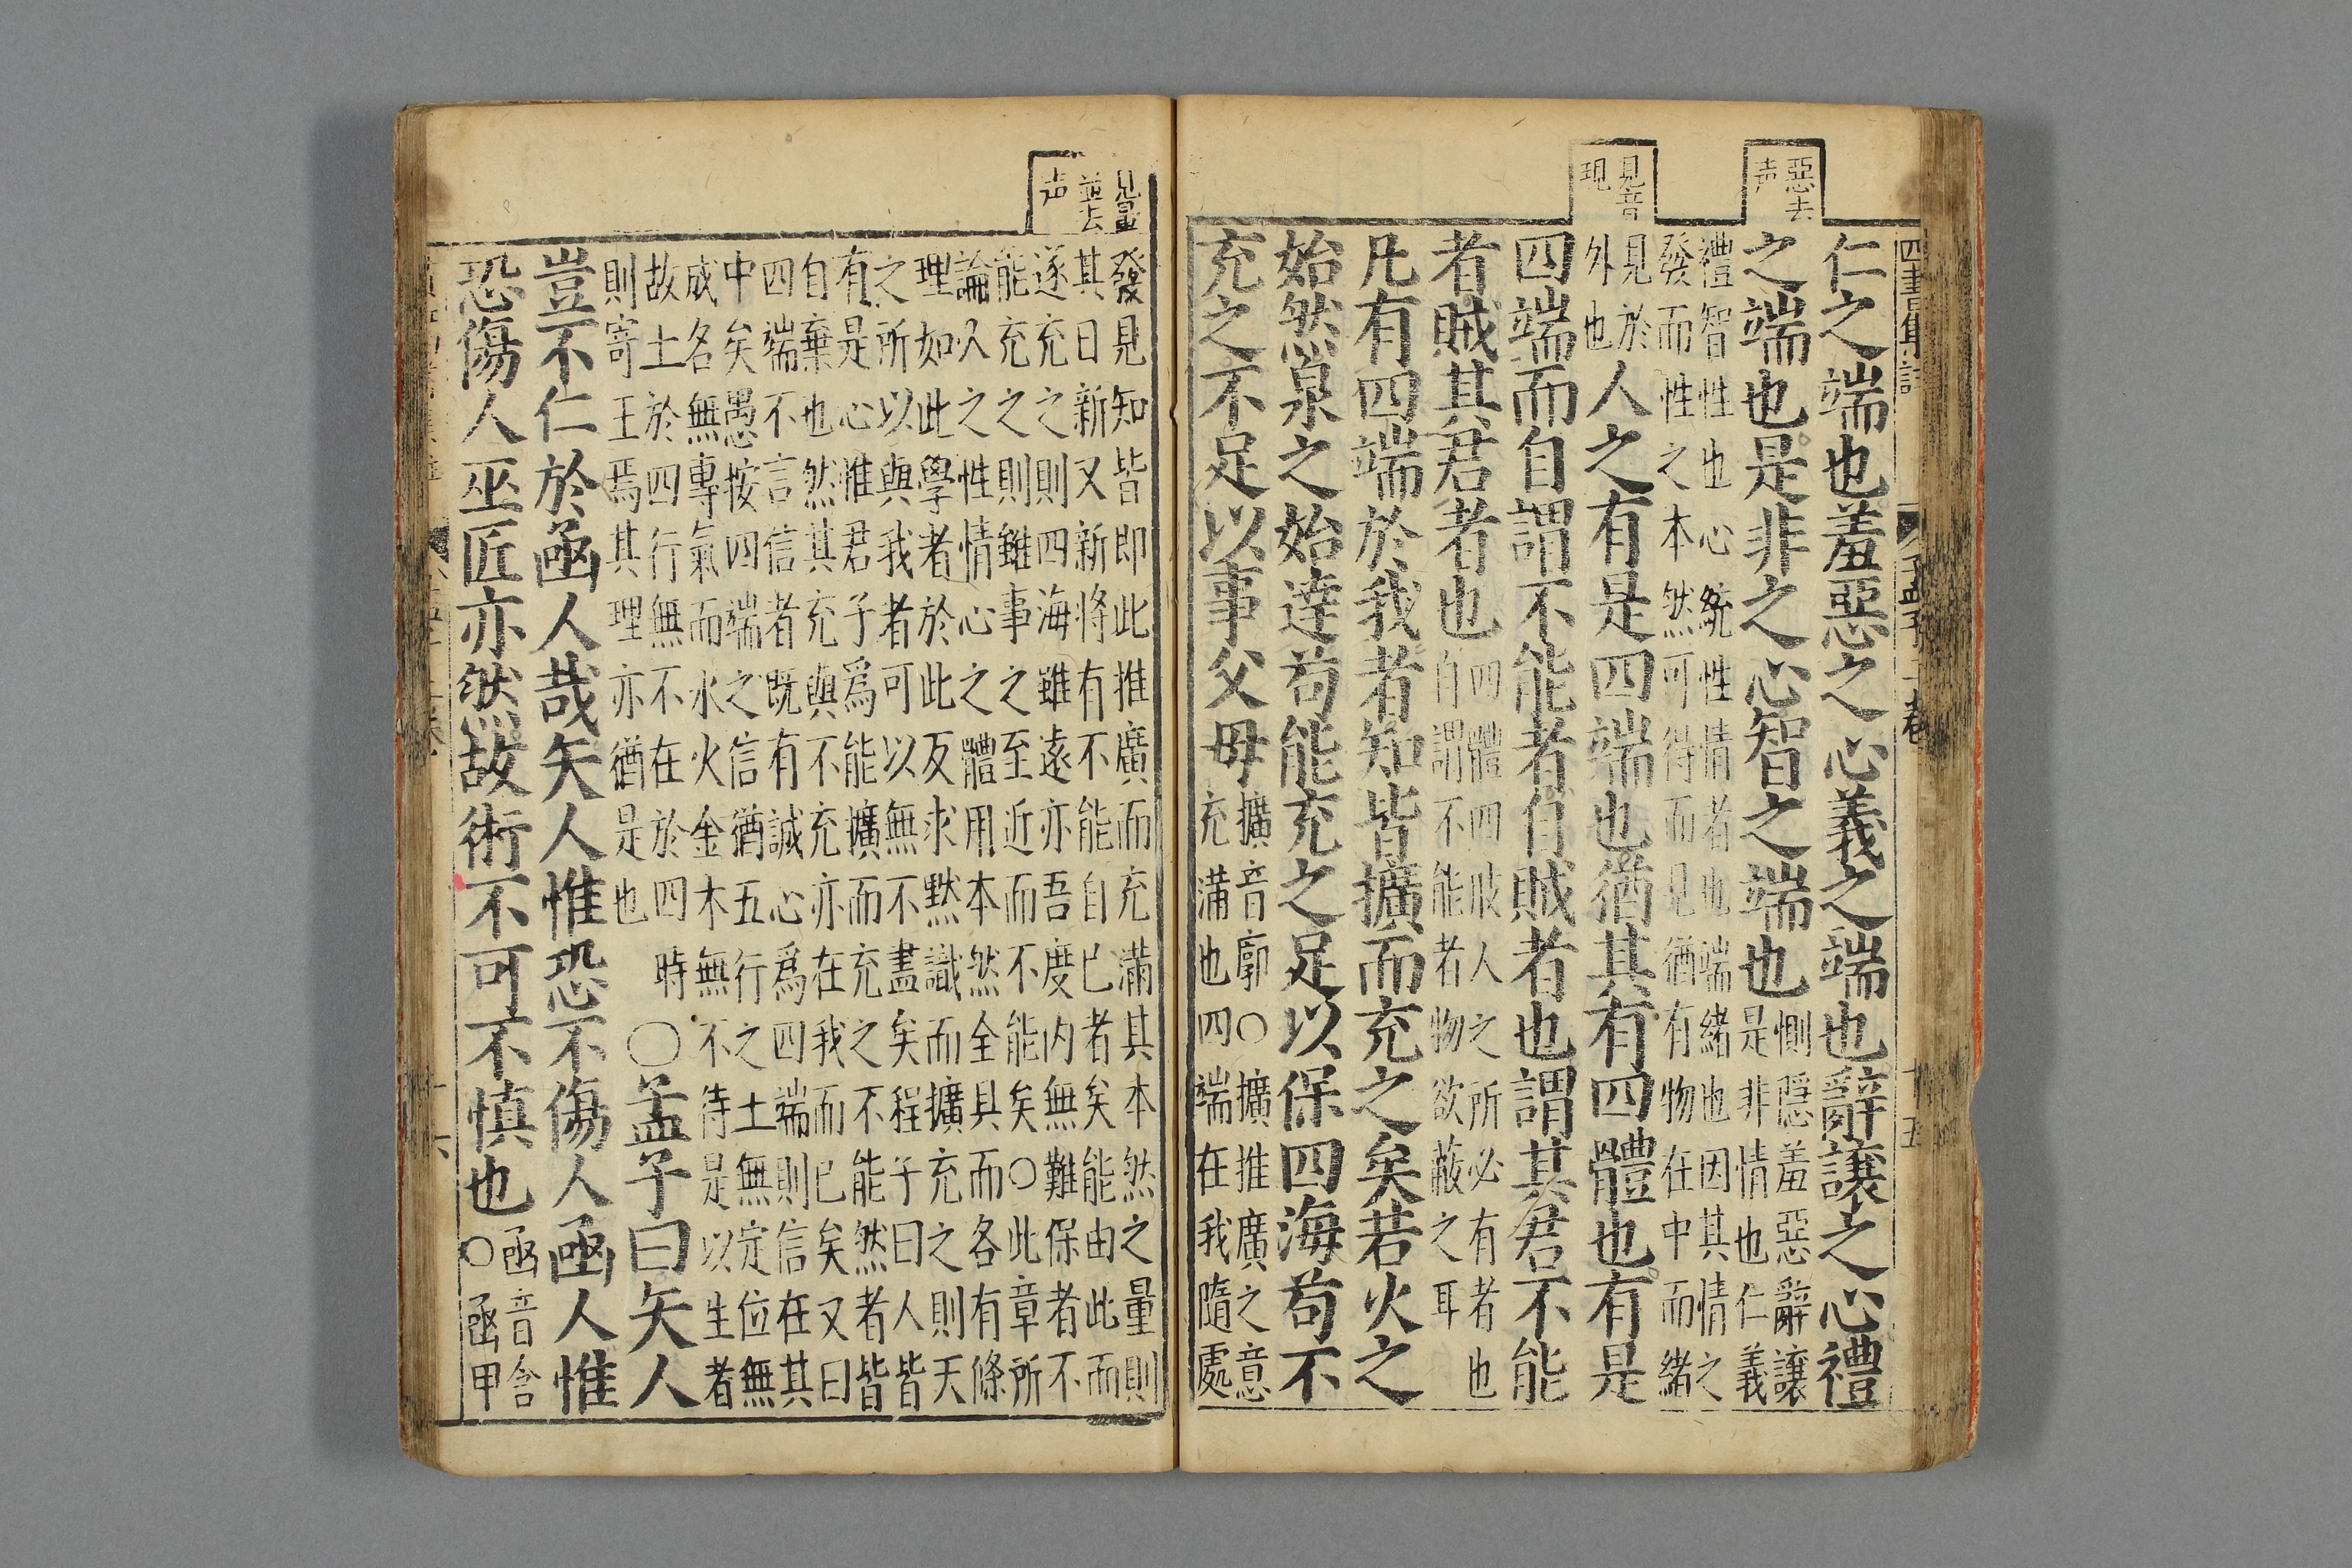 四書集註
孟子二卷
十五
惡去
声
見音
現
仁之端也羞惡之心義之端也辭讓之心禮
之端也是非之心智之端也惻隱羞惡辭讓
是非情也仁義
禮智性也心統性情者也端緒也因其情之
發而性之本然可得而見猶有物在中而緒
見於
外也
人之有是四端也猶其有四體也有是
四端而自謂不能者自賊者也謂其君不能
者賊其君者也四體四肢人之所必有者也
自謂不能者物欲蔽之耳
凡有四端於我者知皆擴而充之矣若火之
始然泉之始達苟能充之足以保四海苟不
充之不足以事父母擴音廓○擴推廣之意
充滿也四端在我隨處
並去
声
發見知皆即此推廣而充滿其本然之量則
其日新又新將有不能自已者矣能由此而
遂充之則四海雖遠亦吾度內無難保者不
能充之則雖事之至近而不能矣○此章所
論人之性情心之體用本然全具而各有條
理如此學者於此反求默識而擴充之則天
之所以與我者可以無不盡矣程子曰人皆
有是心惟君子爲能擴而充之不能然者皆
自棄也然其充與不充亦在我而已矣又曰
四端不言信者既有誠心爲四端則信在其
中矣愚按四端之信猶五行之土無定位無
成名無專氣而水火金木無不待是以生者
故土於四行無不在於四時
則寄王焉其理亦猶是也
○孟子曰矢人
豈不仁於函人哉矢人惟恐不傷人函人惟
恐傷人巫匠亦然故術不可不慎也函音含
○函甲